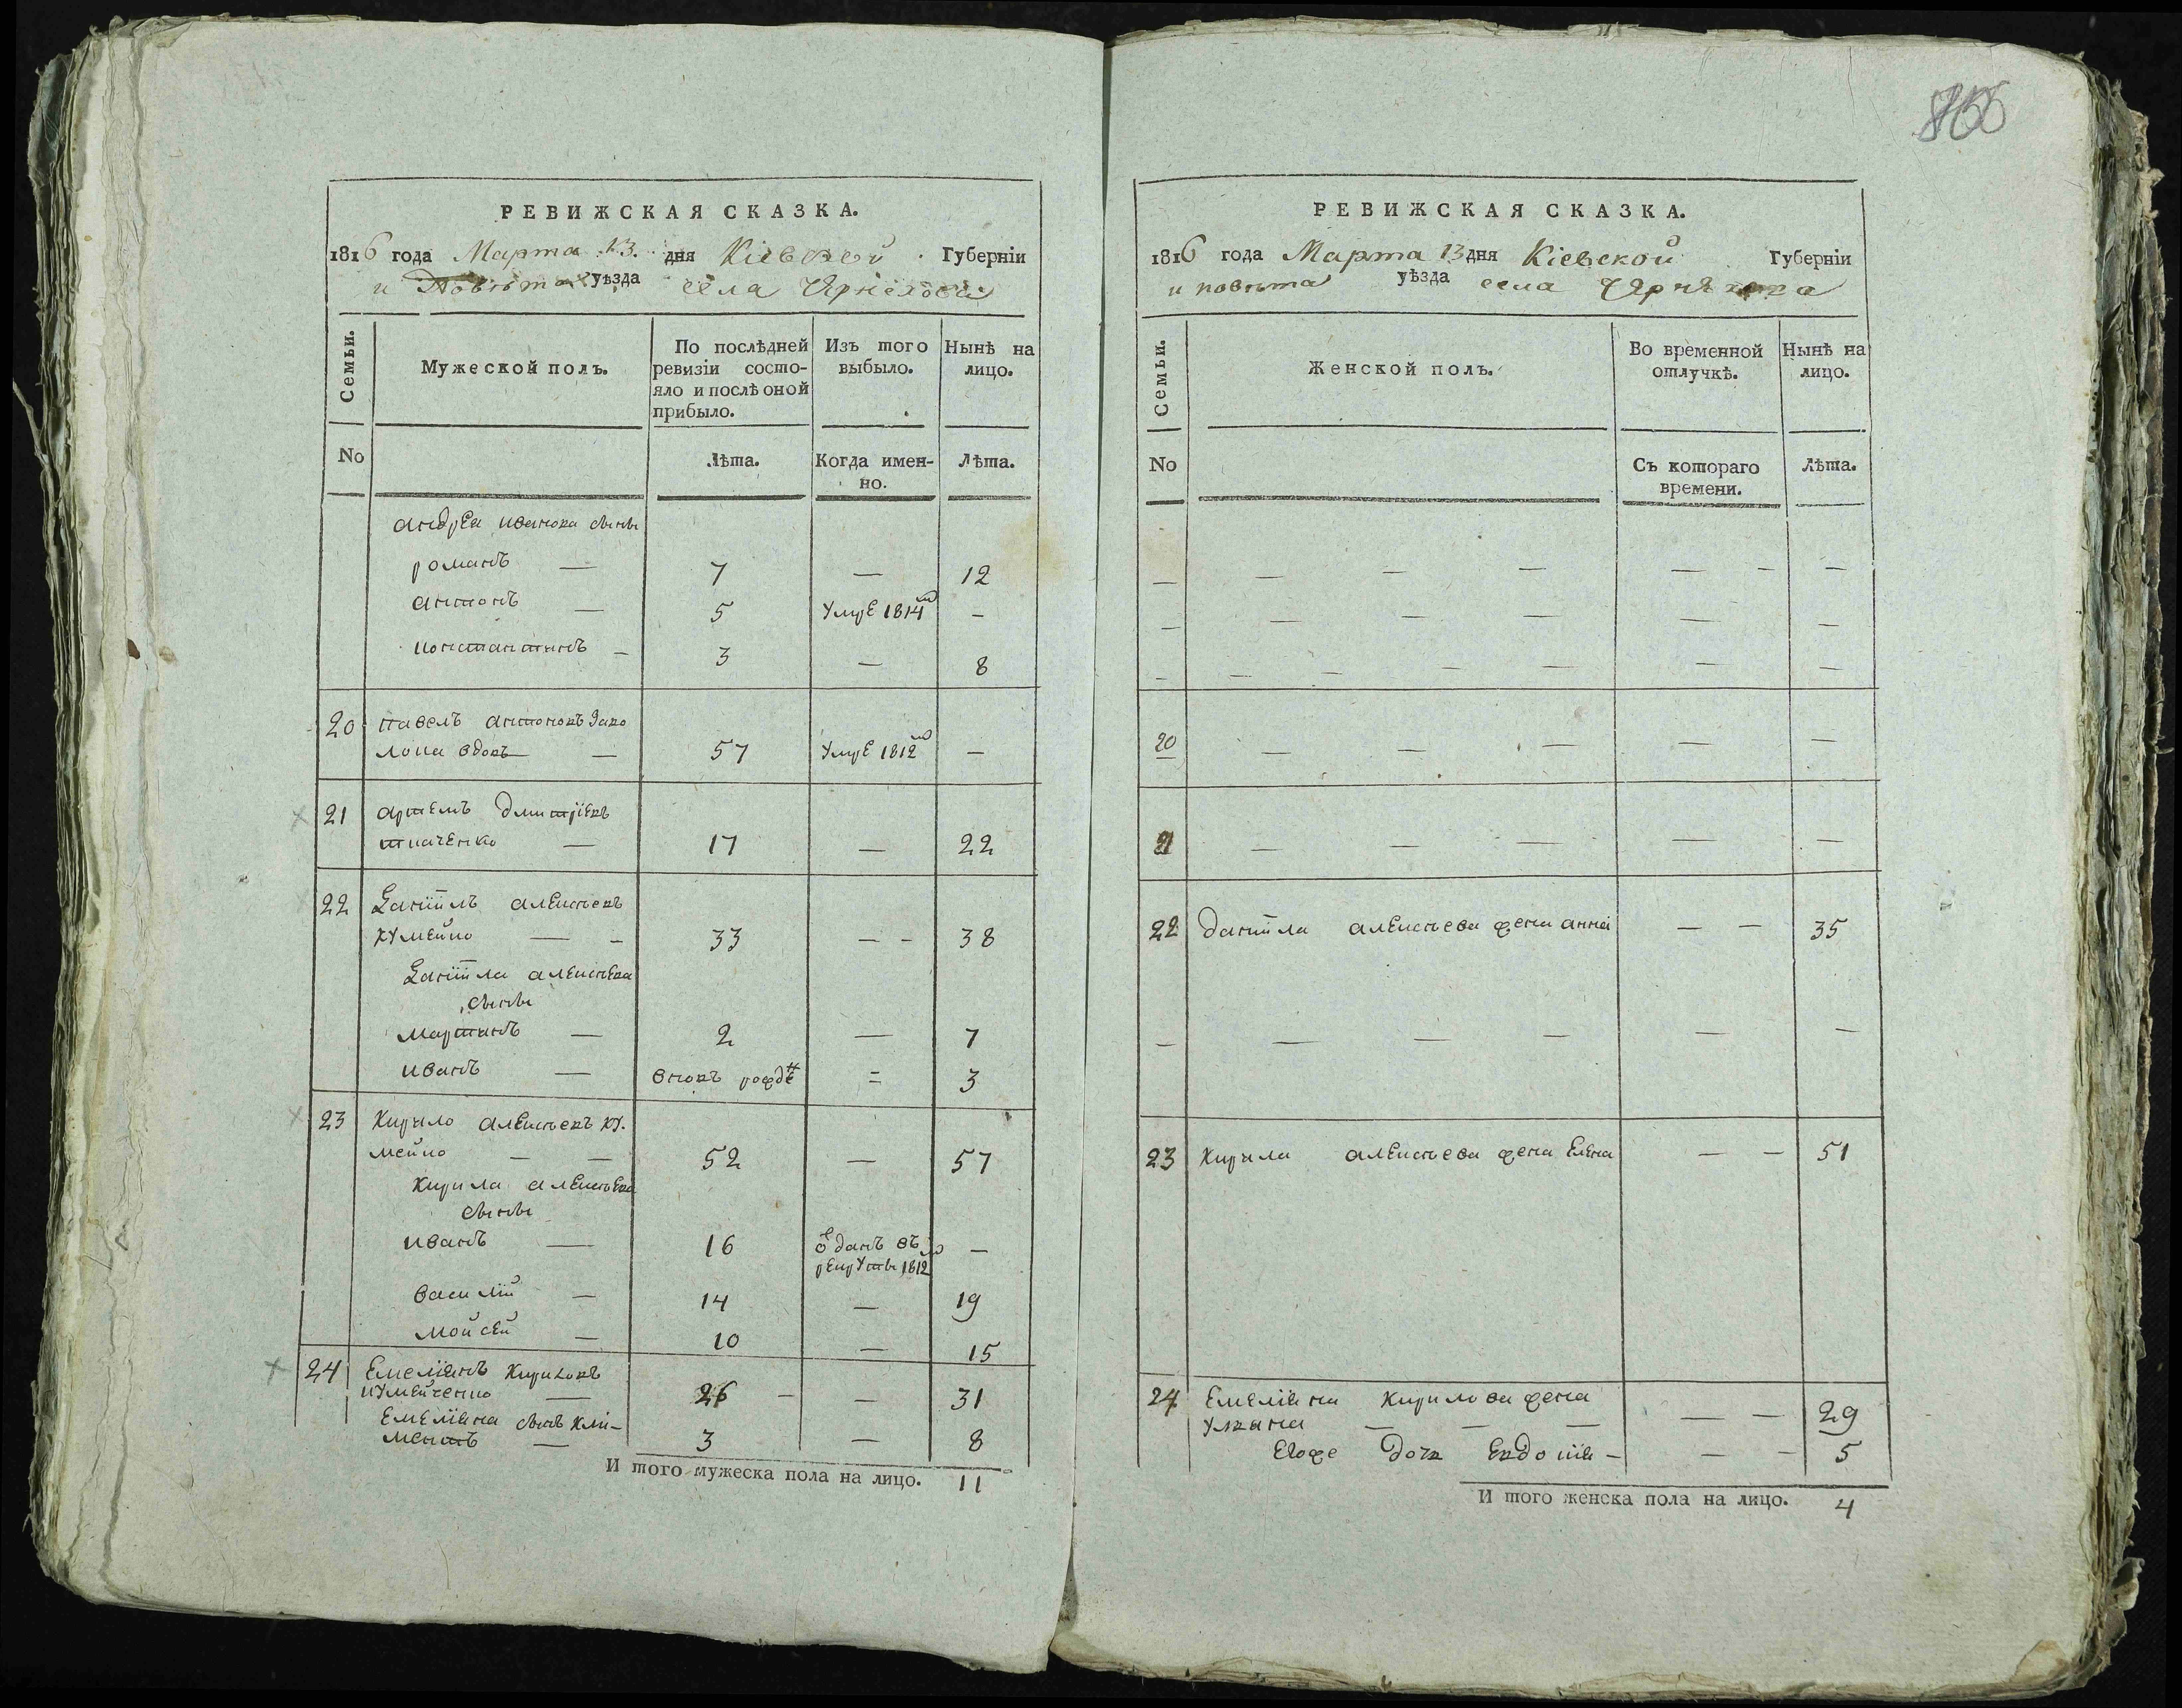 РЕВИЖСКАЯ СКАЗКА.
1816 года Марта 13. дня Кіевской Губерніи
и Повѣта уѣзда села Черняхова
Семьи.
Мужеской полъ.
По послѣдней ревизіи состо-
яло и послѣ оной
прибыло.
Изъ того
выбыло.
Нынѣ на
лицо.
No
Лѣта.
Когда имен-
но.
Лѣта.
андрея иванова сыны
романъ — 7 — 12
антонъ — 5 умре 1814 —
константинъ — 3 — 8
20 павелъ антоновъ
вдовъ — 57 умре 1812 —
21 артемъ дмитріевъ
ткаченко — 17 — 22
22 Даніилъ алексѣевъ
кумейко — — 33 — — 38
Даніила алексѣева
сыны
мартинъ — 2 — 7
иванъ — вновь рожде = 3
23 Кирило алексѣевъ ку-
мейко — — 52 — 57
Кирила алексѣева
сыны
иванъ — 16 оданъ въ —
рекруты 1812
василій — 14 — 19
мойсей — 10 — 15
24 Емеліянъ Кириловъ
кумейченко — 26 — — 31
Емеліяна сынъ Кли-
ментъ — 3 — 8
И того мужеска пола на лицо. 11
РЕВИЖСКАЯ СКАЗКА.
1816 года Марта 13 дня Кіевской Губерніи
и повѣта уѣзда села Черняхова
Семьи.
Женской полъ.
Во временной
отлучкѣ.
Нынѣ на
лицо.
No
Съ котораго
времени.
Лѣта.
20 — — — — —
21 — — — — —
22 даніила алексѣева жена анна — — 35
23 Кирила алексѣева жена Елена — — 51
24 Емеліяна Кирилова жена
уляна — — — — — 29
Егоже дочь Евдокія — — — 5
И того женска пола на лицо. 4